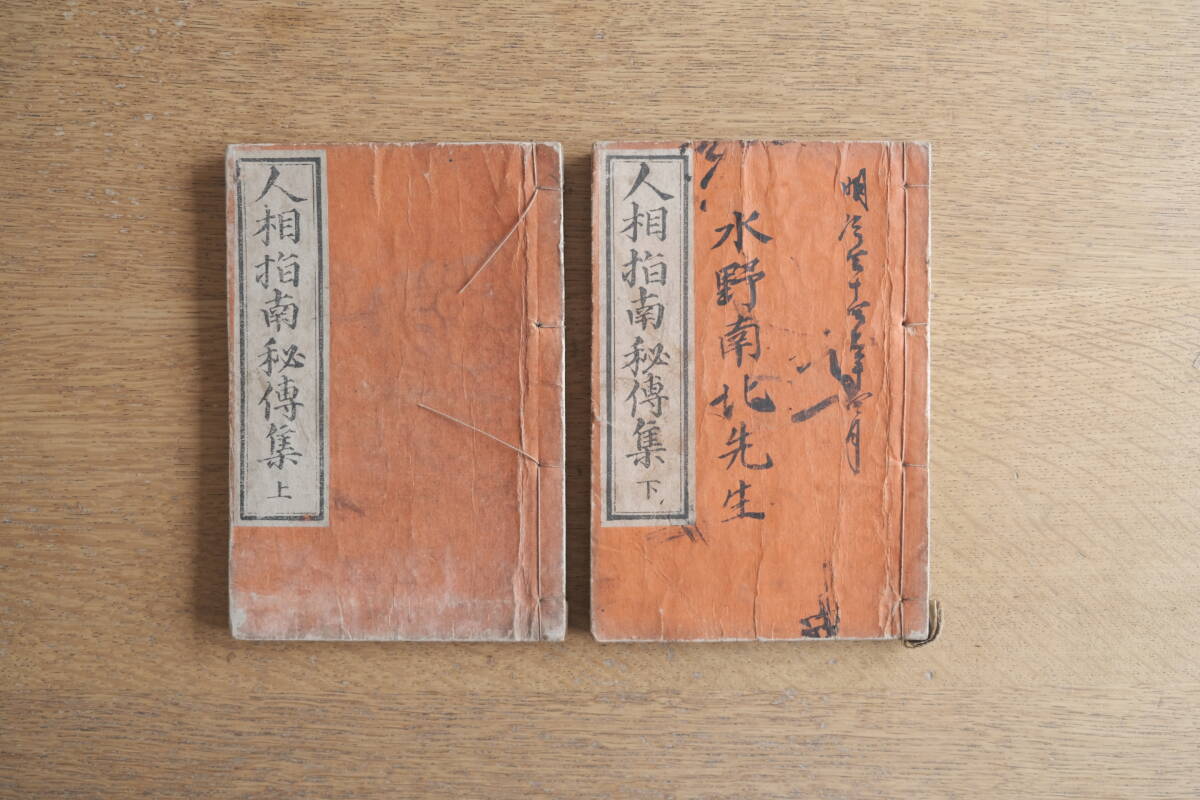 人相指南秘傳集 上
人相指南秘傳集 下
水野南北先生
明治 十 年 月